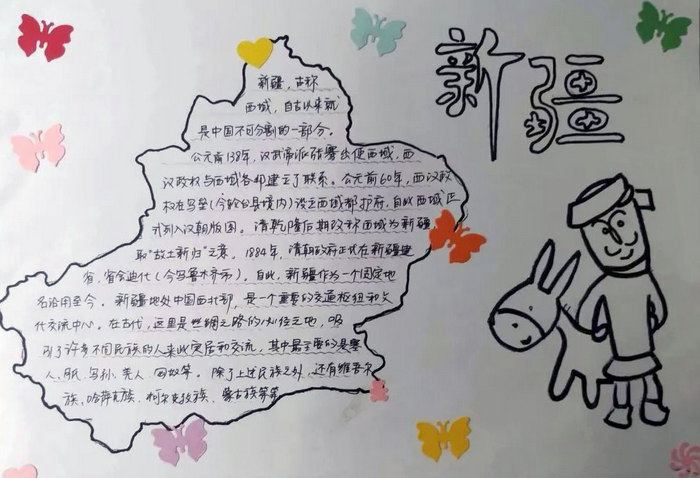 新疆
新疆，古称
西域，自古以来就
是中国不可分割的一部分。
公元前138年，汉武帝派张骞出使西域，西
汉政权与西域各部建立了联系。公元前60年，西汉政
权在乌垒（今轮台县境内）设立西域都护府，自此西域正
式列入汉朝版图。清乾隆后期改称西域为新疆
取“故土新归”之意。1884年，清朝政府正式在新疆建
省，省会迪化（今乌鲁木齐市）。自此，新疆作为一个固定地
名沿用至今。新疆地处中国西北部，是一个重要的交通枢纽和文
化交流中心。在古代，这里是丝绸之路的必经之地，吸
引了许多不同民族的人来此定居和交流，其中最主要的是塞
人、月氏、乌孙、羌人、匈奴等。除了上述民族之外，还有维吾尔
族、哈萨克族、柯尔克孜族、蒙古族等等